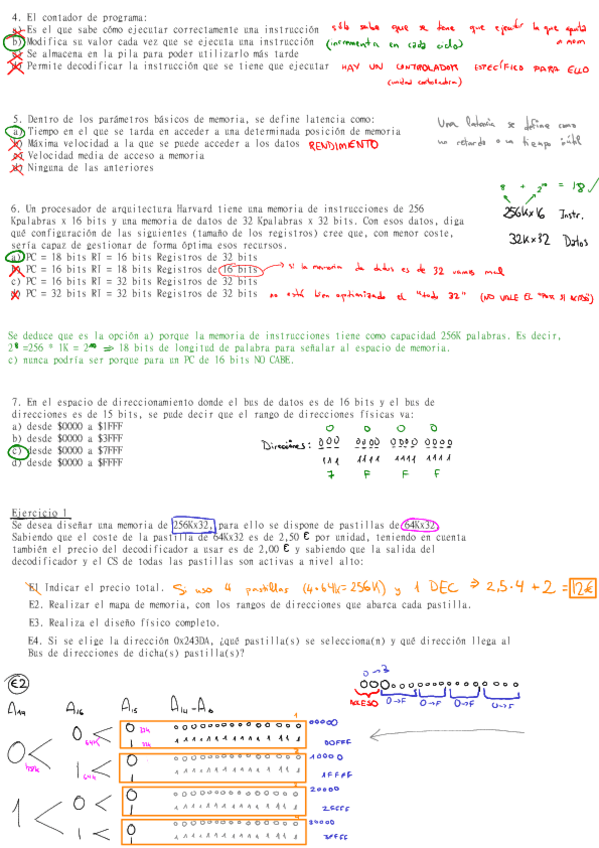 4. El contador de programa:
a) Es el que sabe cómo ejecutar correctamente una instrucción sólo sabe que se tiene que ejecutar lo que apunta
b) Modifica su valor cada vez que se ejecuta una instrucción (incrementa en cada ciclo)
c) Se almacena en la pila para poder utilizarlo más tarde
d) Permite decodificar la instrucción que se tiene que ejecutar HAY UN CONTROLADOR ESPECÍFICO PARA ELLO
(unidad controladora)
5. Dentro de los parámetros básicos de memoria, se define latencia como:
a) Tiempo en el que se tarda en acceder a una determinada posición de memoria
b) Máxima velocidad a la que se puede acceder a los datos RENDIMIENTO
c) Velocidad media de acceso a memoria
d) Ninguna de las anteriores
Una latencia se define como
un retardo o un tiempo útil
6. Un procesador de arquitectura Harvard tiene una memoria de instrucciones de 256
Kpalabras x 16 bits y una memoria de datos de 32 Kpalabras x 32 bits. Con esos datos, diga
qué configuración de las siguientes (tamaño de los registros) cree que, con menor coste,
sería capaz de gestionar de forma óptima esos recursos.
= 18 ✓
256K x 16 Instr.
32K x 32 Datos
a) PC = 18 bits RI = 16 bits Registros de 32 bits
b) PC = 16 bits RI = 18 bits Registros de 16 bits → si la memoria de datos es de 32 vamos mal
c) PC = 16 bits RI = 32 bits Registros de 32 bits
d) PC = 32 bits RI = 32 bits Registros de 32 bits no está bien optimizado el "todo 32" (NO VALE EL
Se deduce que es la opción a) porque la memoria de instrucciones tiene como capacidad 256K palabras. Es decir,
=256 * 1K = ⇒ 18 bits de longitud de palabra para señalar al espacio de memoria.
c) nunca podría ser porque para un PC de 16 bits NO CABE.
7. En el espacio de direccionamiento donde el bus de datos es de 16 bits y el bus de
direcciones es de 15 bits, se pude decir que el rango de direcciones físicas va:
a) desde $0000 a $1FFF
b) desde $0000 a $3FFF
c) desde $0000 a $7FFF
d) desde $0000 a $FFFF
0 0 0 0
Direcciones: 000 0000 0000 0000
111 1111 1111 1111
7 F F F
Ejercicio 1
Se desea diseñar una memoria de 256Kx32, para ello se dispone de pastillas de 64Kx32
Sabiendo que el coste de la pastilla de 64Kx32 es de 2,50 € por unidad, teniendo en cuenta
también el precio del decodificador a usar es de 2,00 € y sabiendo que la salida del
decodificador y el CS de todas las pastillas son activas a nivel alto:
E1. Indicar el precio total. Si uso 4 pastillas (4·64K=256K) y 1 DEC ⇒ 2,5·4 + 2 = 12€
E2. Realizar el mapa de memoria, con los rangos de direcciones que abarca cada pastilla.
E3. Realiza el diseño físico completo.
E4. Si se elige la dirección 0x243DA, ¿qué pastilla(s) se selecciona(n) y qué dirección llega al
Bus de direcciones de dicha(s) pastilla(s)?
E2
0→3
ACCESO 0→F 0→F 0→F 0→F
A16 A15 A14-A0
00000
0FFFF
10000
1FFFF
20000
2FFFF
30000
3FFFF